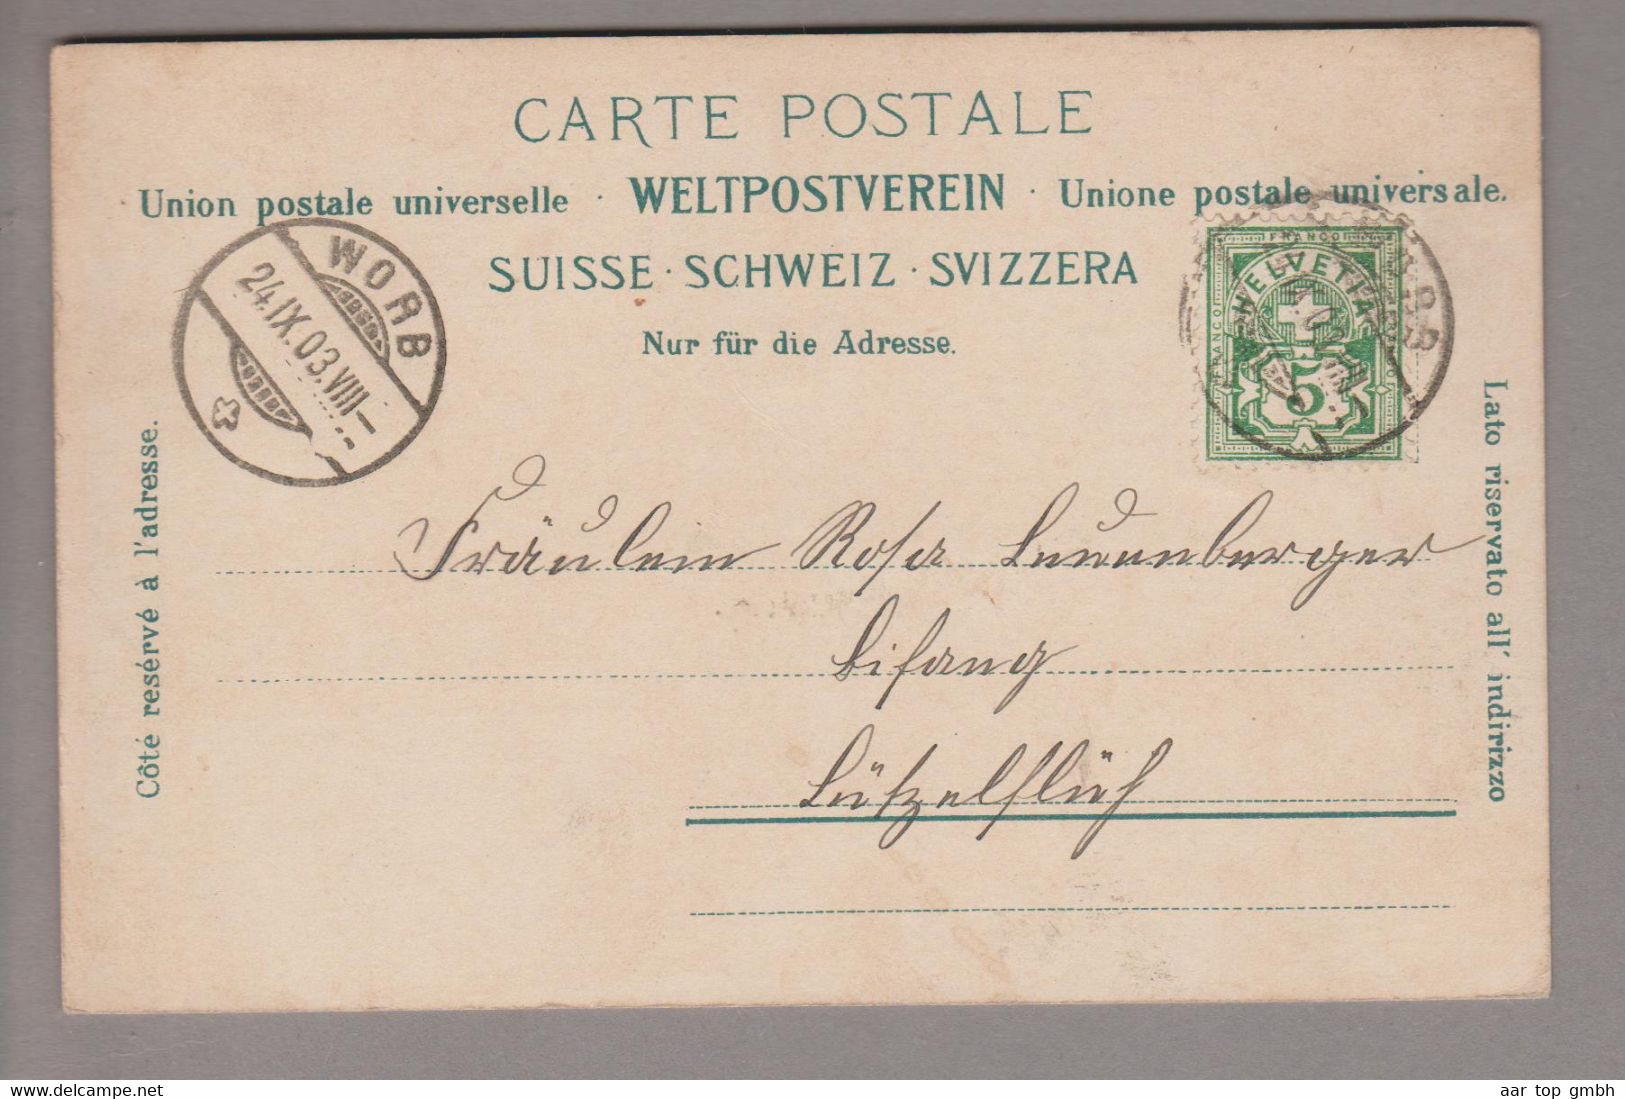 CARTE POSTALE
Union postale universelle · WELTPOSTVEREIN · Unione postale universale.
SUISSE · SCHWEIZ · SVIZZERA
Nur für die Adresse.
WORB
24.IX.03.VIII-
FRANCO
HELVETIA
FRANCO
5
Côté resérvé à l'adresse.
Lato riservato all' indirizzo
Fräulein Rosa Leuenberger
Bifang
Lützelflüh
aar top gmbh
https://www.delcampe.net